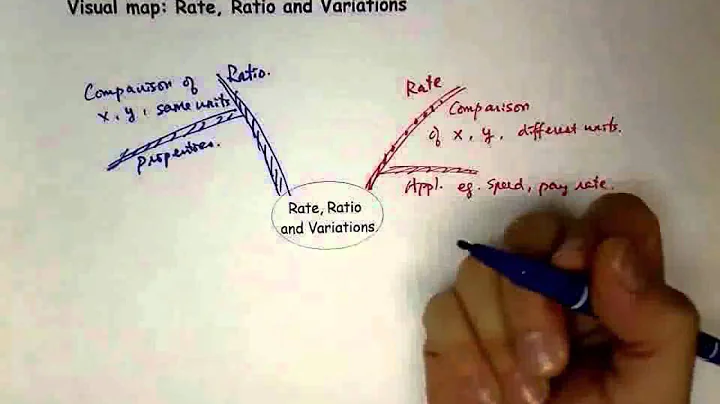 Visual map: Rate, Ratio and Variations
Ratio.
Comparison of
x, y, same units
properties.
Rate
Comparison
of x, y, different units.
Appl. eg. Speed, pay rate.
Rate, Ratio
and Variations